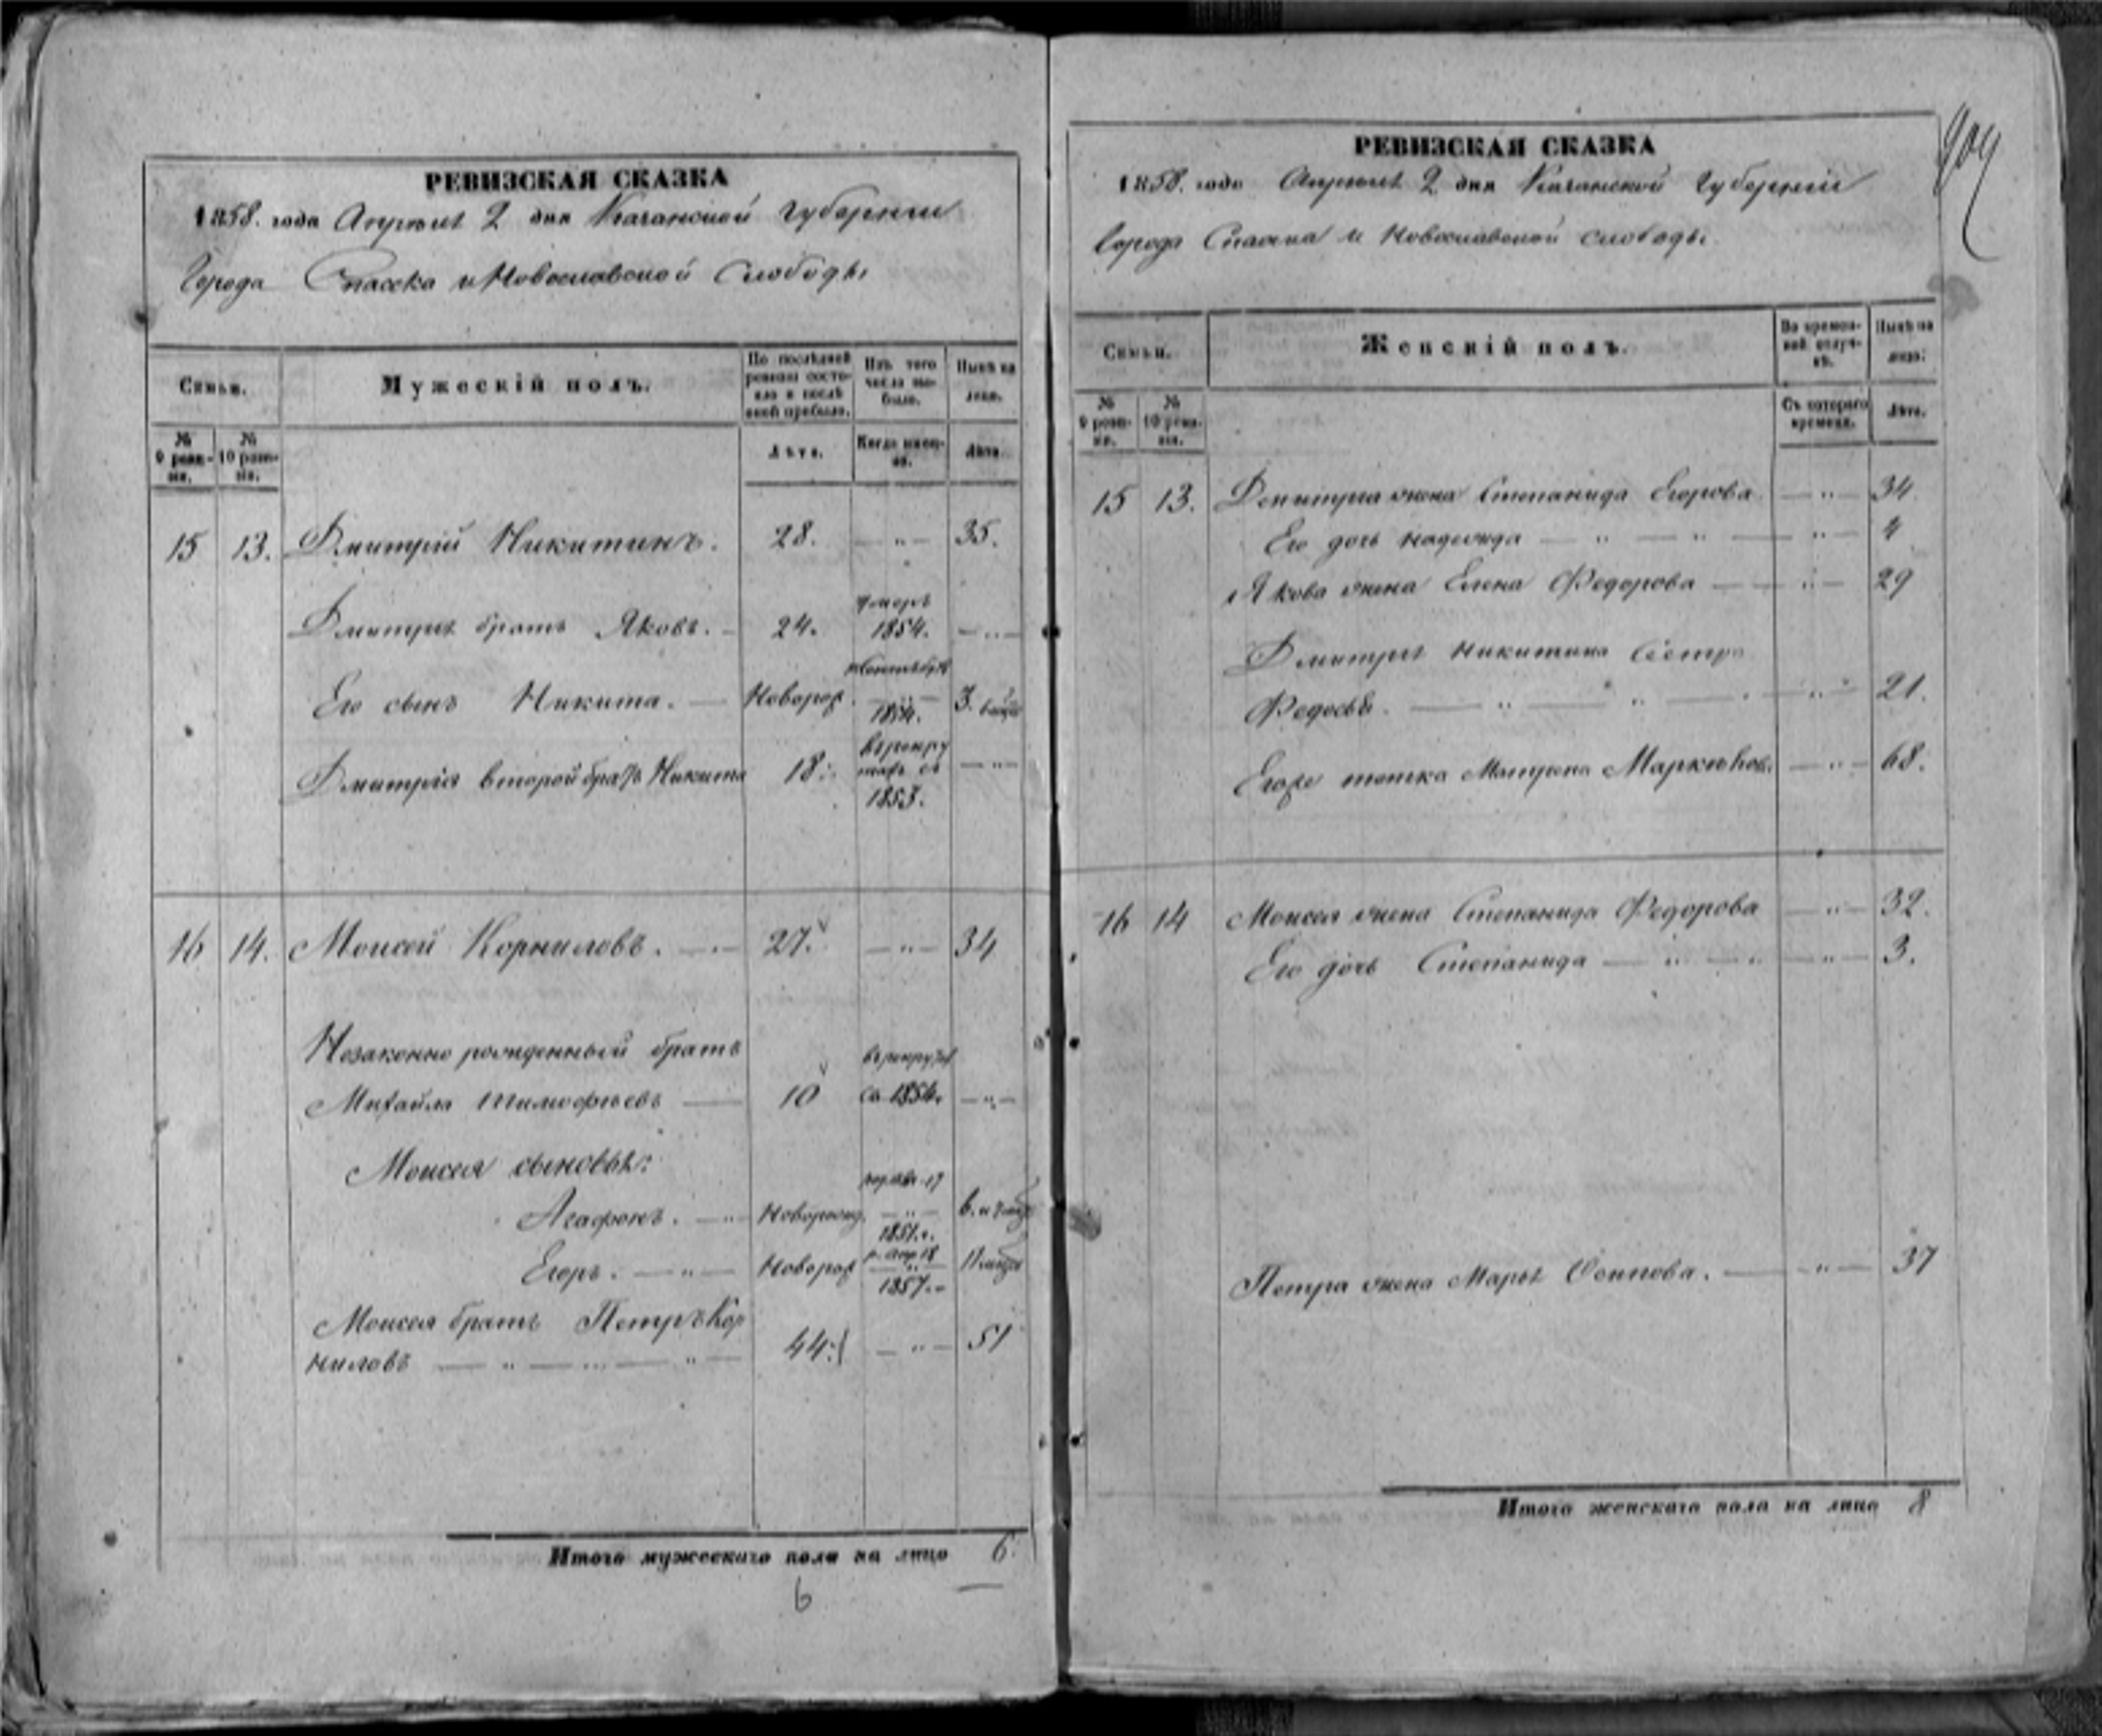 РЕВИЗСКАЯ СКАЗКА
1858. года Апреля 2 дня Казанской Губернии
Города Спасска и Новоспавской Слободы
Семьи. Мужескій полъ. По послѣдней ревизіи состояло и послѣ оной прибыло. Изъ того числа выбыло. Нынѣ на лицо.
№ 9 ревизіи. № 10 ревизіи. Лѣта. Когда именно. Лѣта.
15 13. Дмитрій Никитинъ. 28. — „ — 35.
Дмитрія братъ Яковъ. 24. умеръ 1854. — „ —
Его сынъ Никита. — Новорож. 1854. 3.
Дмитрія второй братъ Никита 18. въ рекрутахъ съ 1853. — „ —
16 14. Моисей Корниловъ. — 27. — „ — 34
Незаконно рожденный братъ
Михайла Тимофѣевъ — 10 въ рекрутах съ 1854. — „ —
Моисея сыновья:
Агафонъ. — „ Новорожд. 1851. 6. и
Егоръ. — „ — Новорож р. апр 18 1857. 11
Моисея братъ Петръ Кор
ниловъ — „ — „ — „ — 44. — „ — 51
Итого мужескаго пола на лицо 6.
6
РЕВИЗСКАЯ СКАЗКА
909
1858. года Апреля 2 дня Казанской Губерніи
Города Спасска и Новоспавской слободы.
Семьи. Женскій полъ. Во временной отлучкѣ. Нынѣ на лицо.
№ 9 ревизіи. № 10 ревизіи. Съ котораго времени. Лѣта.
15 13. Дмитрія жена Степанида Егорова. — „ — 34.
Его дочь Надежда — „ — „ — „ — 4
Якова жена Елена Федорова — „ — 29
Дмитрія Никитина Сестра
Федосья. — „ — „ — „ — 21.
Егоре тетка Матрена Маркѣлов. — „ — 68.
16 14 Моисея жена Степанида Федорова — „ — 32.
Его дочь Степанида — „ — „ — „ — 3.
Петра жена Марья Осипова. — „ — 37
Итого женскаго пола на лицо 8